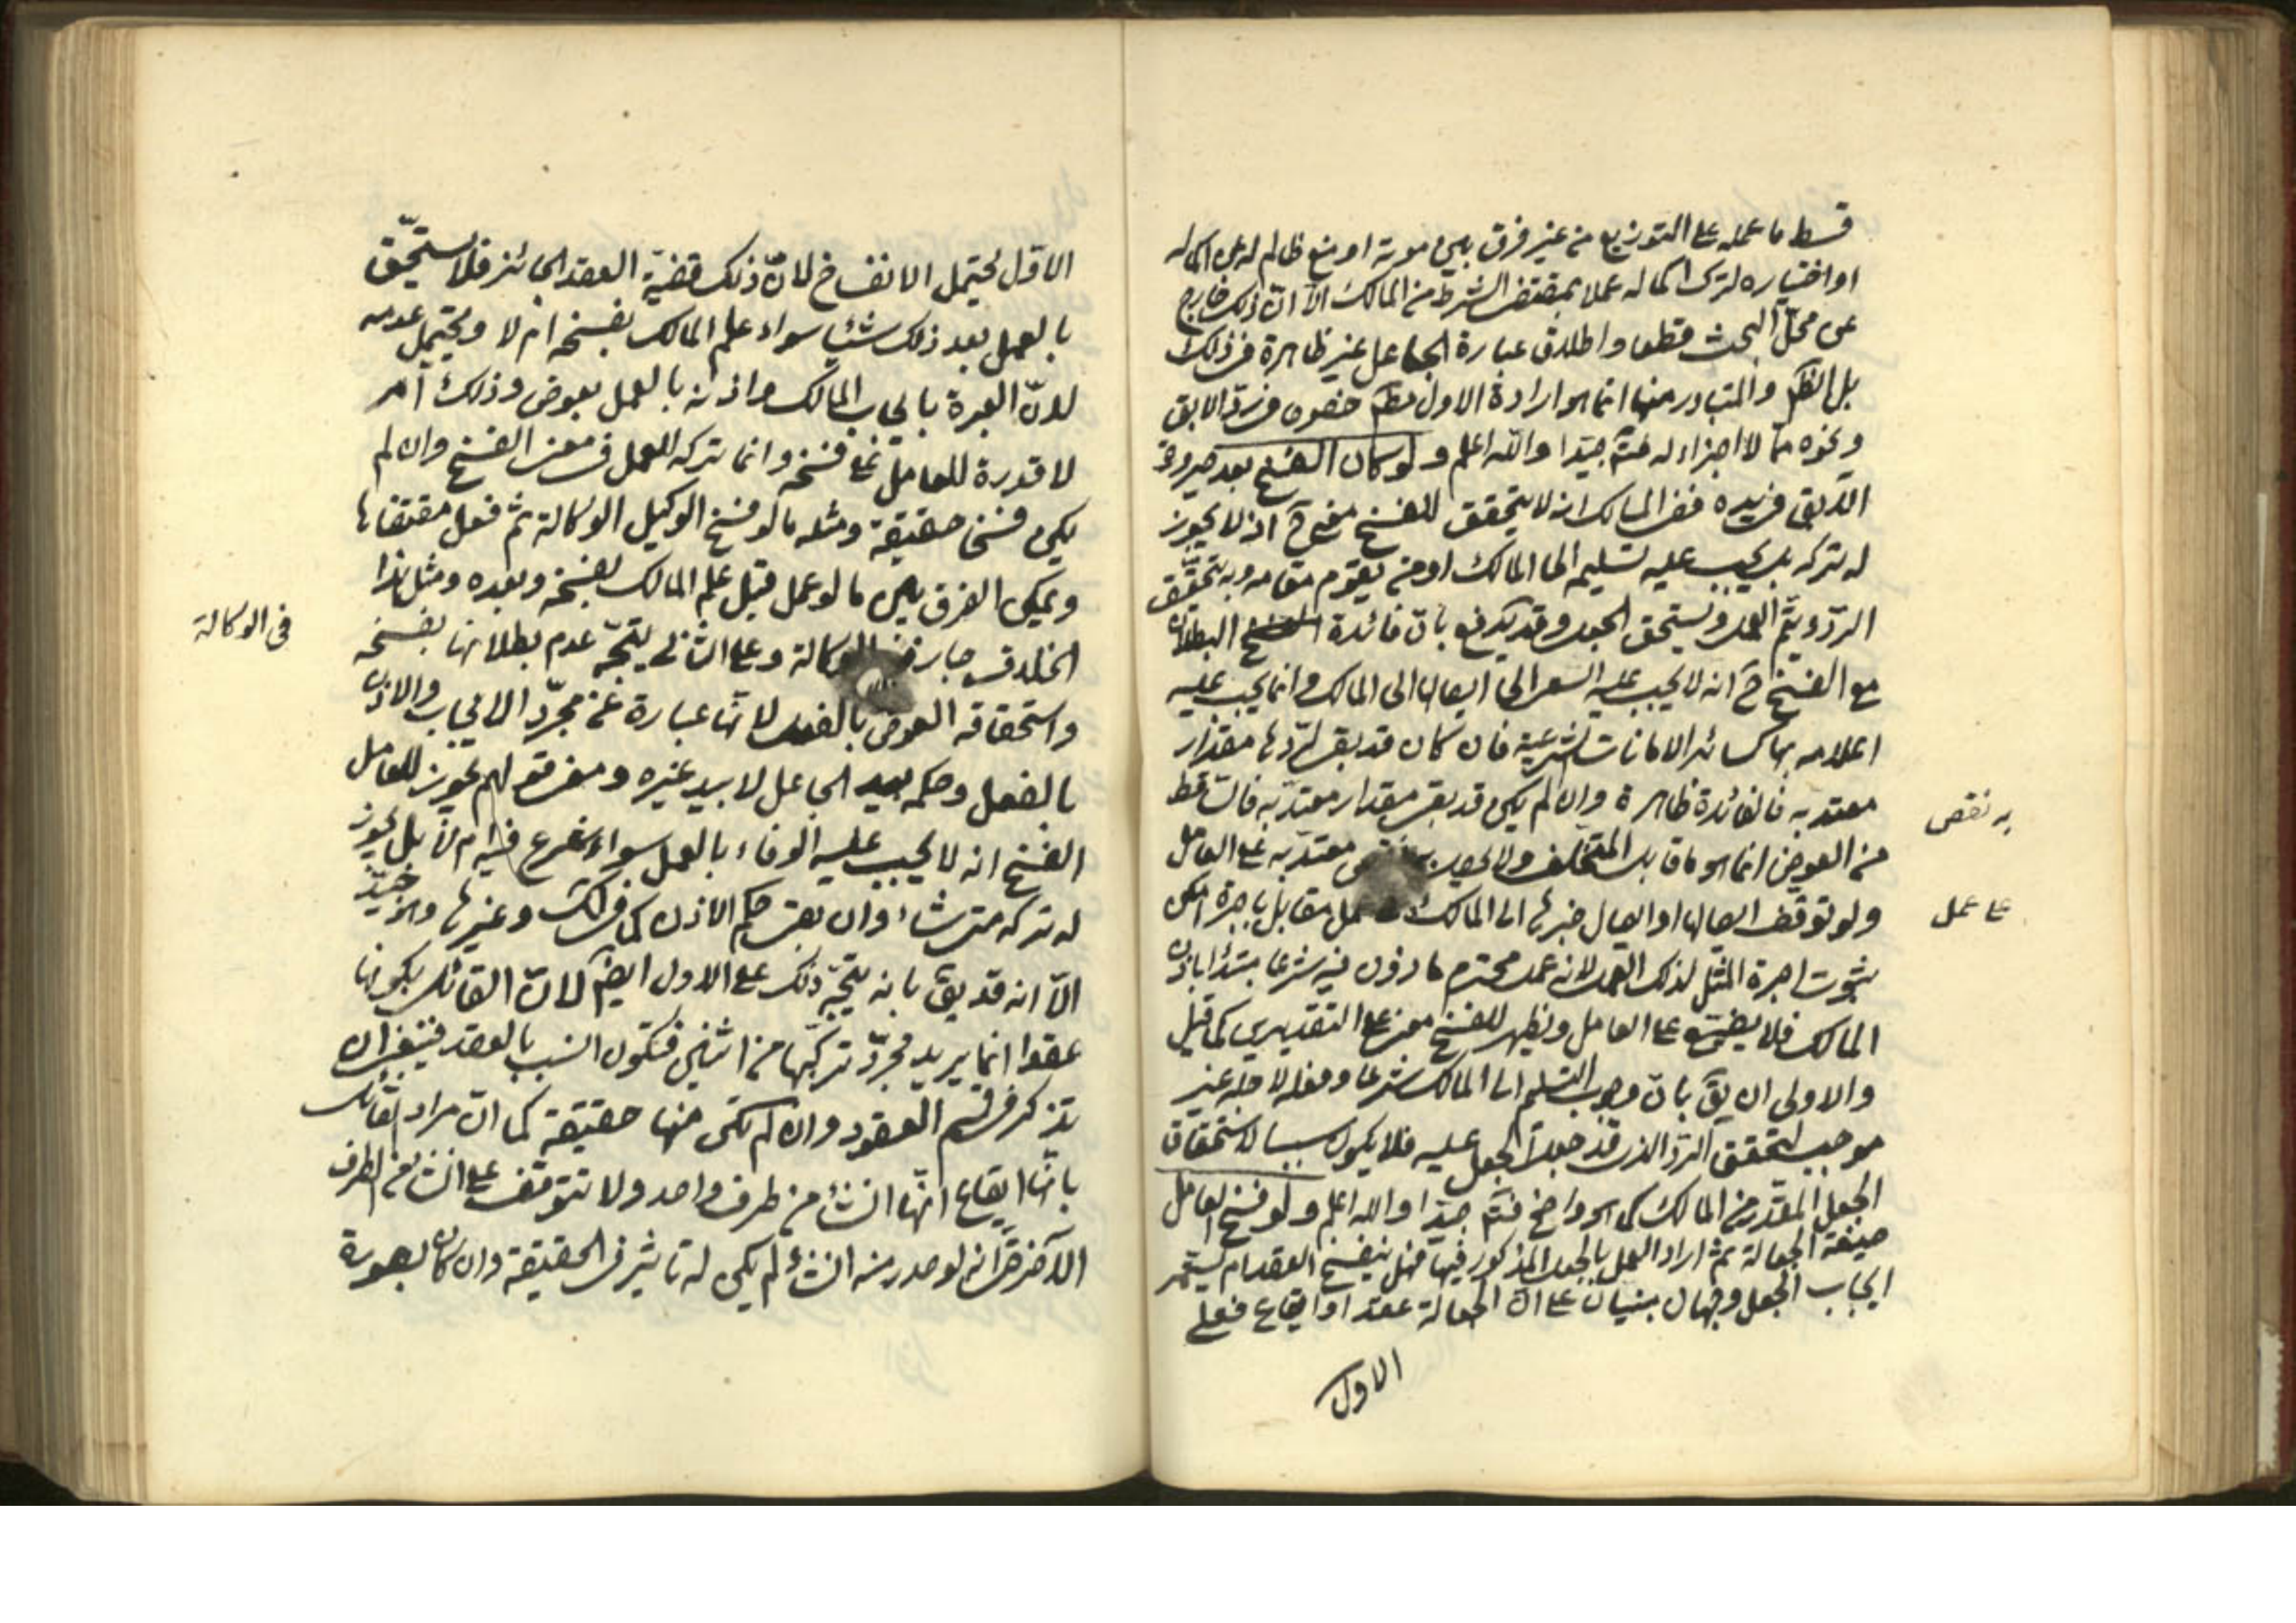 قسط ما عمله على التوزيع من غير فرق بين موته او منع ظالم له عن اكماله
او اختياره لترك اكماله عملا بمقتضى الشرط من المالك الا ان ذلك خارج
عن محل البحث قطعا واطلاق عبارة الجاعل غير ظاهرة في ذلك
بل الظ والمتبادر منها انما هو ارادة الاول خصوص في رد الابق
ونحوه مما لا اجزاء له فتم جيدا والله اعلم ولو كان الفسخ بعد صيرورة
الآبق في يده ففي المسالك انه لا يتحقق للفسخ معنى ح اذ لا يجوز
له تركه بل يجب عليه تسليمه الى المالك او من يقوم مقامه وبه يتحقق
الرد ويتم العمل ويستحق الجعل وقد يدفع بان فائدة البطلان
مع الفسخ ح انه لا يجب عليه السعي الى ايصالها الى المالك وانما يجب عليه
اعلامه بها كسائر الامانات الشرعية فان كان قد بقي لردها مقدار
معتد به فالفائدة ظاهرة وان لم يكن قد بقي مقدار معتد به فالساقط
من العوض انما هو ما قابل المتخلف ولا يحصل معتد به على العامل
ولو توقف ايصالها او ايصال خبرها الى المالك عمل مقابل باجرة امكن
ثبوت اجرة المثل لذلك العمل لانه عمل محترم ماذون فيه شرعا مبتدا باذن
المالك فلا يضيع على العامل ويظهر للفسخ معنى على التقديرين كما قيل
والاولى ان يق بان وجوب التسليم الى المالك شرعا
موجب لتحقق الرد الذي قد جعل الجعل عليه فلا يكون سببا لاستحقاق
الجعل المقدر من المالك كما هو واضح فتم جيدا والله اعلم ولو فسخ العامل
صيغة الجعالة ثم اراد العمل بالجعل المذكور فيها فهل ينفسخ العقد ام يستمر
ايجاب الجعل وجهان مبنيان على ان الجعالة عقد او ايقاع فعلى
الاول
به نقص
على عمل
الاول يحتمل الانفساخ لان ذلك قضية العقد الجائز فلا يستحق
بالعمل بعد ذلك شيئا سواء علم المالك بفسخه ام لا ويحتمل عدمه
لان العبرة بايجاب المالك واذنه بالعمل بعوض وذلك امر
لا قدرة للعامل على فسخه وانما تركه للعمل في معنى الفسخ وان لم
يكن فسخا حقيقة ومثله ما لو فسخ الوكيل الوكالة ثم فعل مقتضاها
ويمكن الفرق بين ما لو عمل قبل علم المالك بفسخه وبعده ومثل هذا
الخلاف جار في الوكالة وعلى الثاني يتجه عدم بطلانها بفسخه
واستحقاقه العوض بالفعل لانها عبارة عن مجرد الايجاب والاذن
بالفعل وحكمه بيد الجاعل لا بيد غيره ومعنى قولهم يجوز للعامل
الفسخ انه لا يجب عليه الوفاء بالعمل سواء شرع فيه ام لا بل يجوز
له تركه متى شاء وان بقي حكم الاذن كما في لك وغيرها وهو جيد
الا انه قد يق بانه يتجه ذلك على الاول ايضا لان القائل بكونها
عقدا انما يريد مجرد تركبها من اثنين فتكون انسب بالعقد فينبغي ان
تذكر في قسم العقود وان لم تكن منها حقيقة كما ان مراد القائل
بانها ايقاع انها انشاء من طرف واحد ولا تتوقف على انشاء من الطرف
الآخر حتى انه لو صدر منه انشاء لم يكن له تاثير في الحقيقة وان كان بصورة
في الوكالة